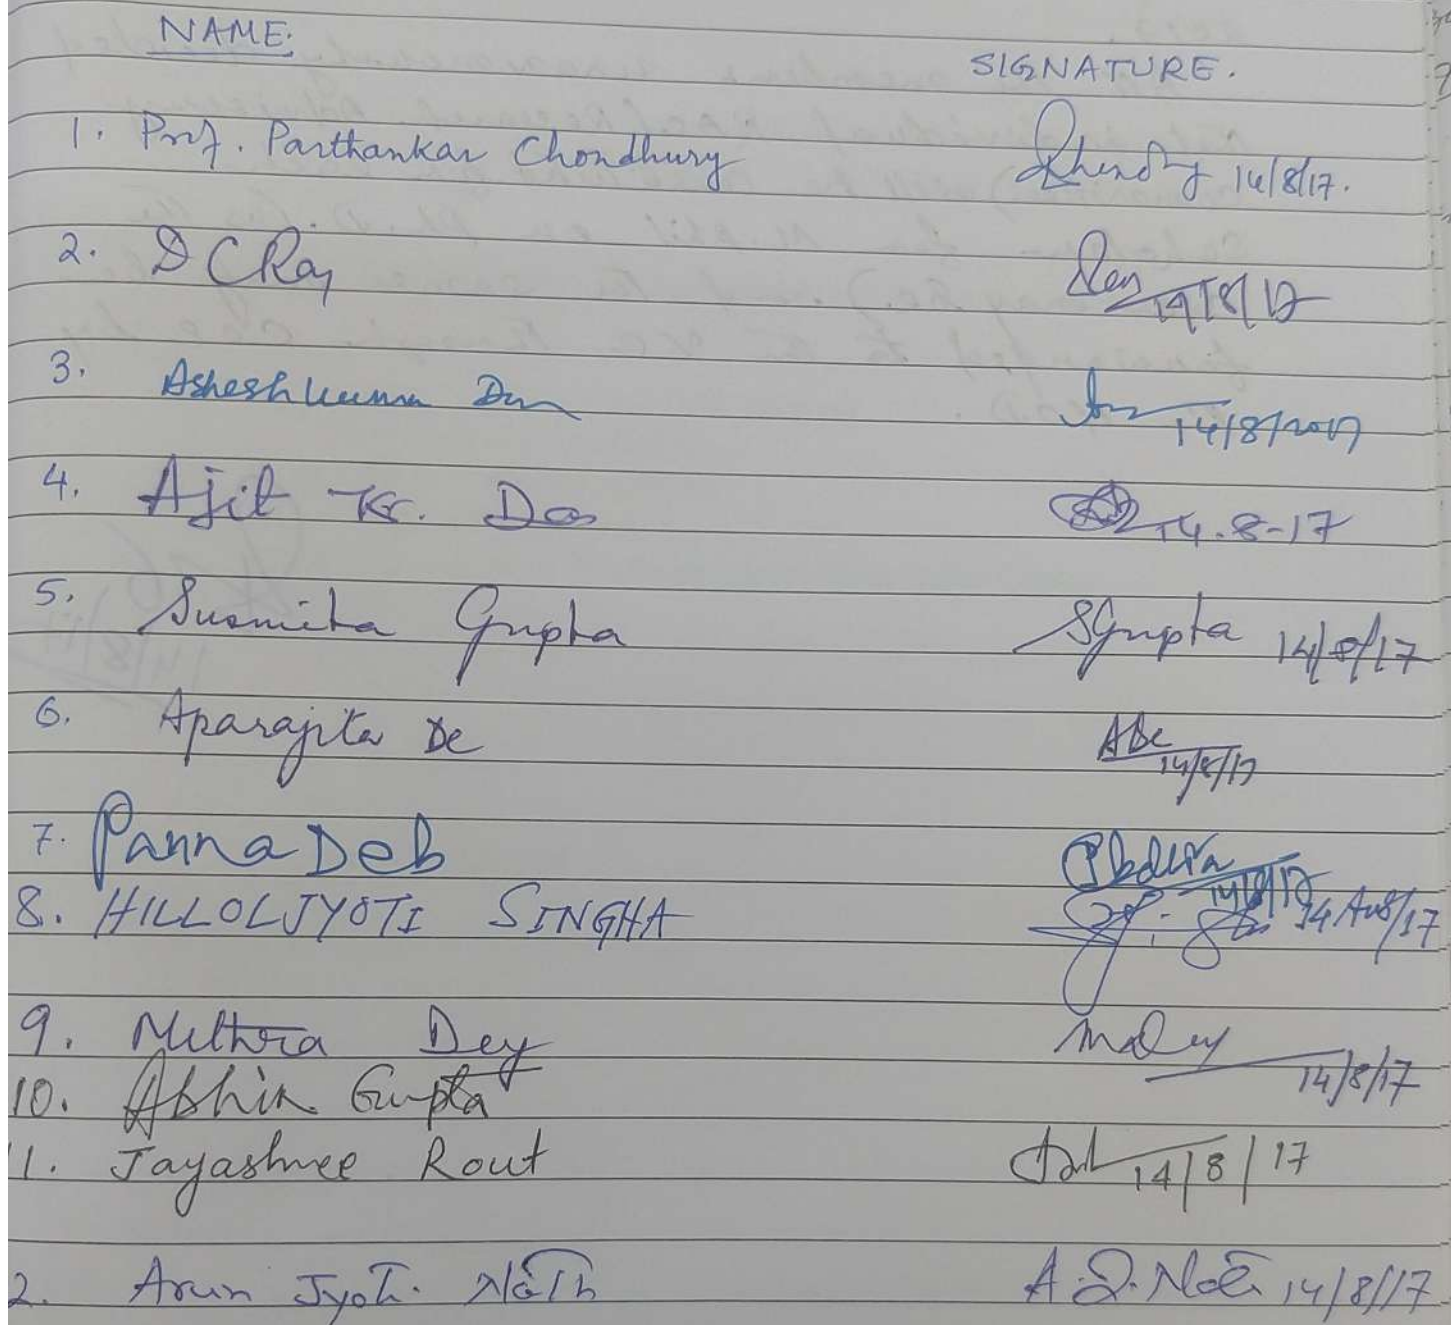 NAME:
SIGNATURE.
1. Prof. Parthankar Choudhury 14/8/17.
2. D C Ray Ray 14/8/17
3. Ashesh Kumar Das 14/8/2017
4. Ajit Kr. Das 14.8-17
5. Susmita Gupta SGupta 14/8/17
6. Aparajita De ADe 14/8/17
7. Panna Deb 14/8/17
8. HILLOLJYOTI SINGHA 14 Aug/17
9. Mithra Dey MDey 14/8/17
10. Abhik Gupta
11. Jayashree Rout 14/8/17
2. Arun Jyoti Nath A.J. Nath 14/8/17